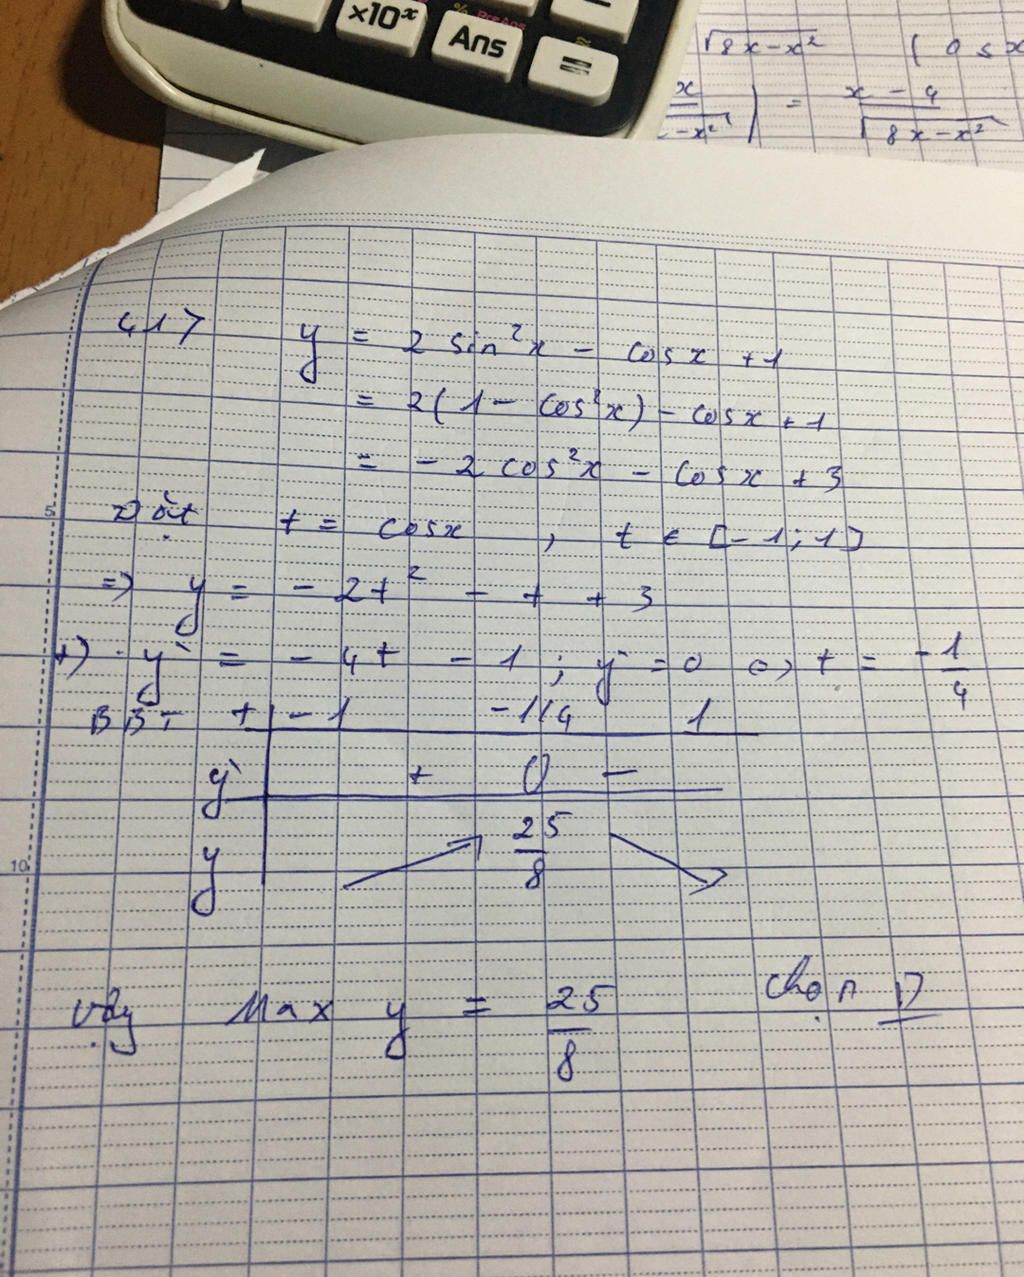 ×10ˣ
PreAns
Ans
=
√8x-x²
(0≤x
x
-x²
| = x-4
√8x-x²
41> y = 2 sin²x - cosx +1
= 2(1 - cos²x) - cosx + 1
= -2 cos²x - cosx + 3
5
Đặt t = cosx , t ∈ [-1;1]
=> y = -2t² - t + 3
+) y' = -4t - 1 ; y' = 0 <=> t = -1/4
BBT t -1 -1/4 1
y' + 0 -
10
y 25/8
Vậy Max y = 25/8 chọn D